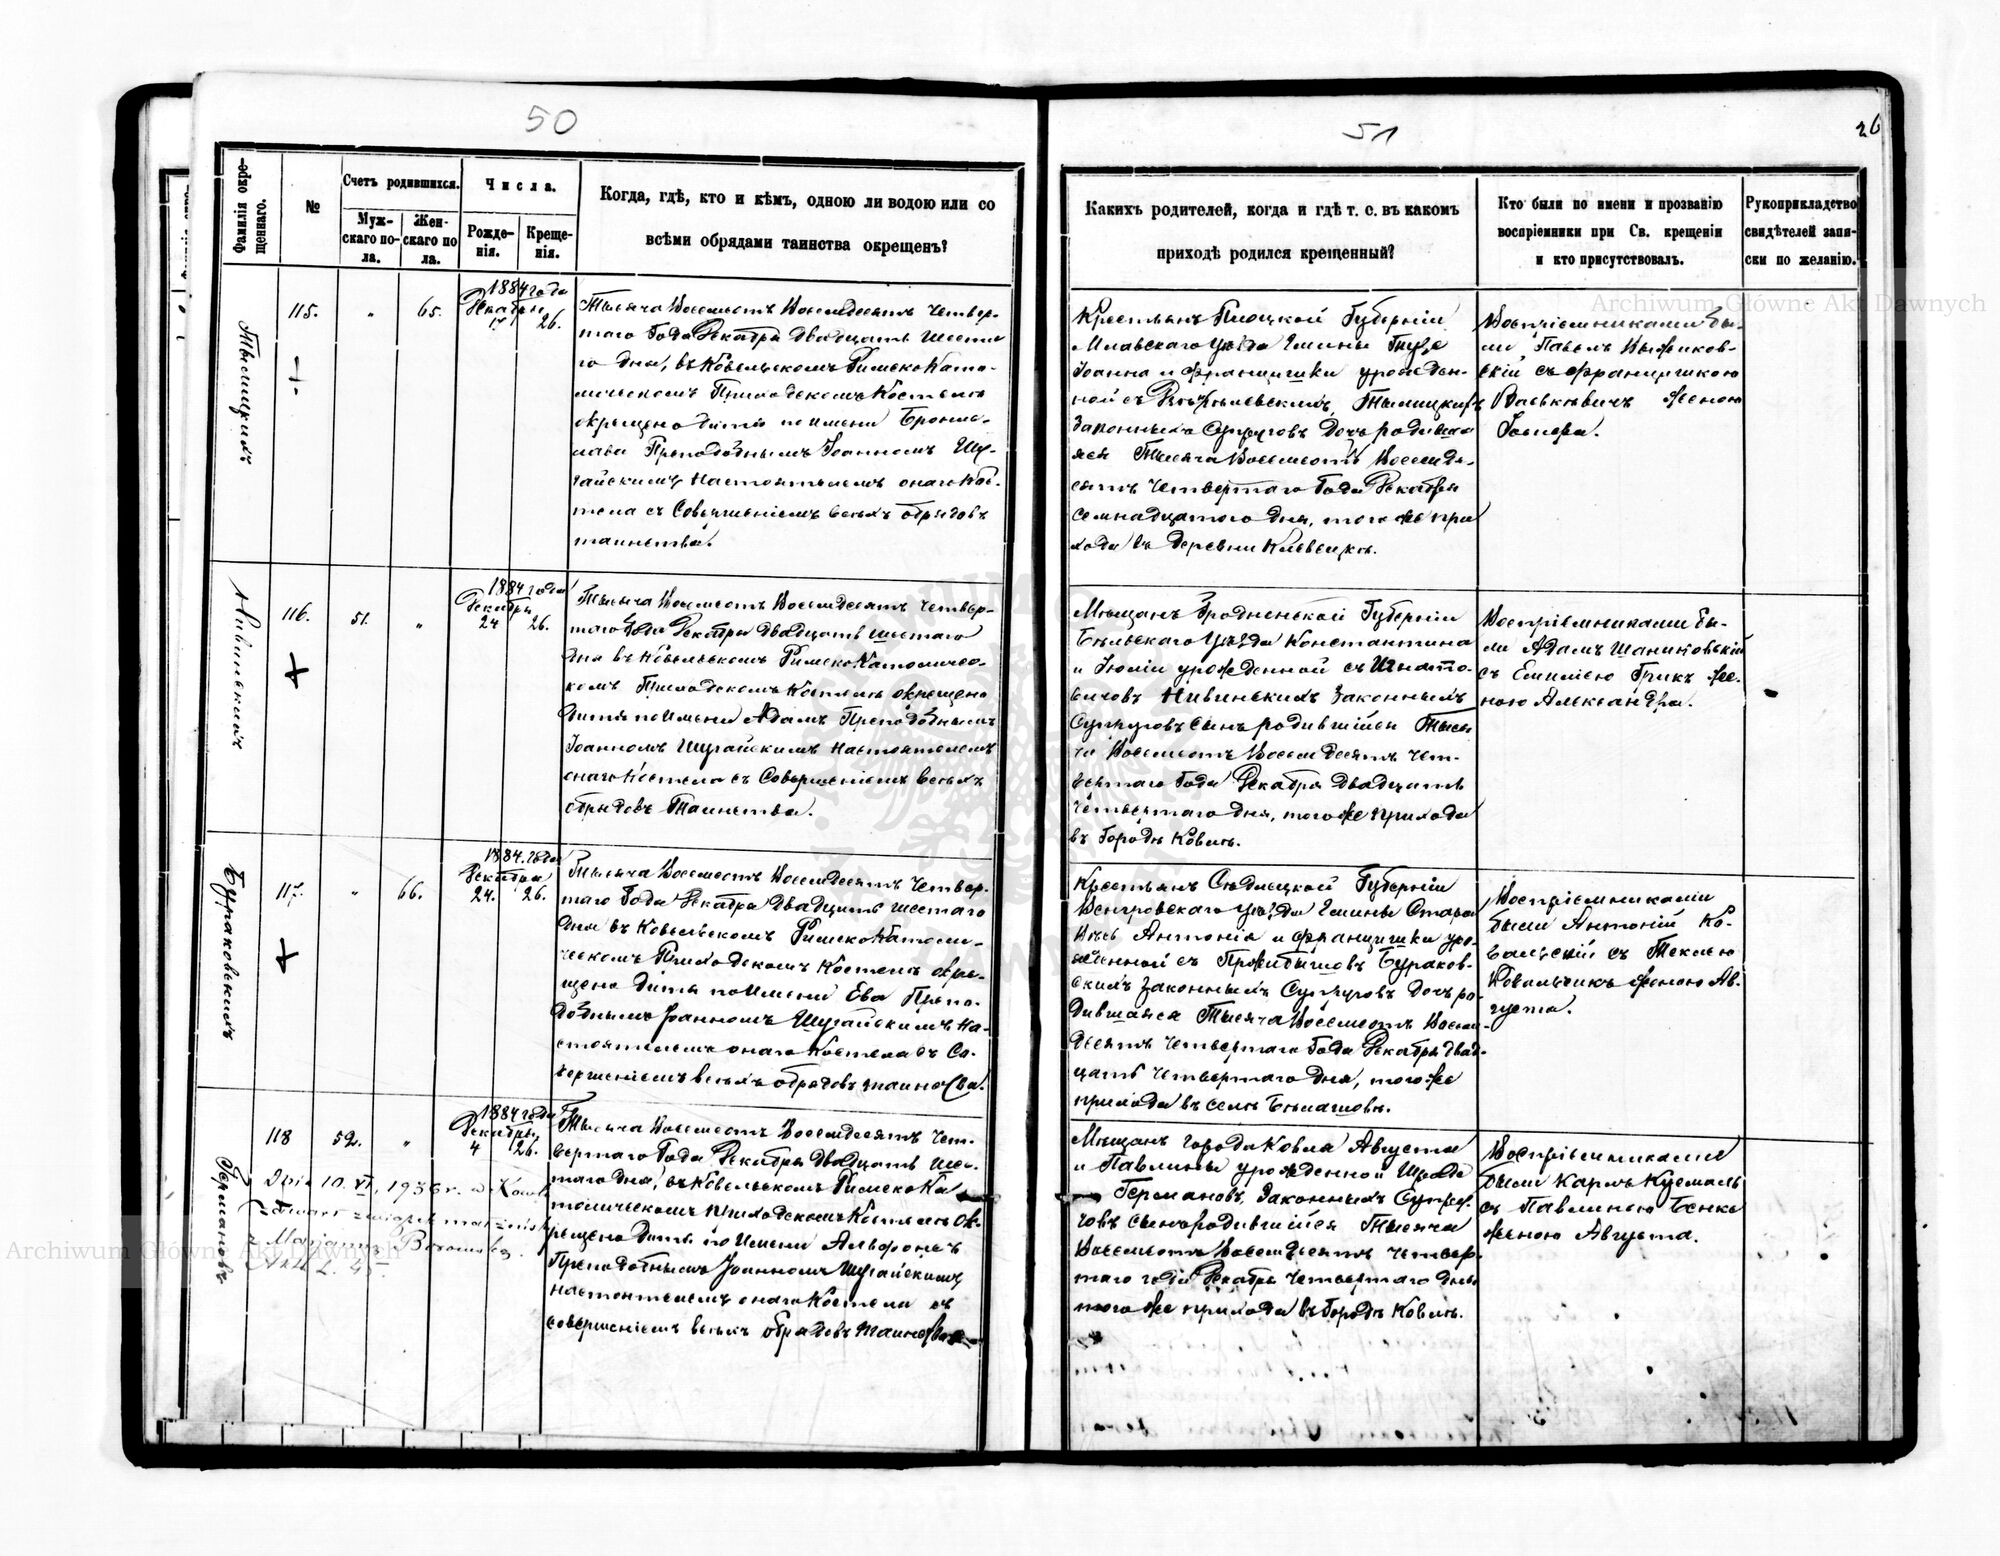 50
Фамилія окре-
щеннаго.
№
Счетъ родившихся.
Муж-
скаго по-
ла.
Жен-
скаго по
ла.
Числа.
Рожде-
нія.
Креще-
нія.
Когда, гдѣ, кто и кѣмъ, одною ли водою или со
всѣми обрядами таинства окрещенъ?
115.
"
65.
1884 года
Декабря
17
26.
Тысяча Восемьсотъ Восемдесятъ Четвер-
таго Года Декабря Двадцать Шеста
го Дня, въ Ковельскомъ Римско Като-
лическомъ Приходскомъ Костелѣ
окрещено Дитя по имени Бронис-
лава Преподобнымъ Іоанномъ Шу-
гайскимъ Настоятелемъ онаго Кос-
тела съ Совершеніемъ всѣхъ обрядовъ
таинства.
116.
51.
"
1884 года
Декабря
24
26.
Тысяча Восемьсотъ Восемдесятъ Четвер-
таго Года Декабря Двадцать шестаго
Дня въ Ковельскомъ Римско Католичес-
комъ Приходскомъ Костелѣ окрещено
Дитя по Имени Адамъ Преподобнымъ
Іоанномъ Шугайскимъ Настоятелемъ
онаго Костела съ Совершеніемъ всѣхъ
обрядовъ Таинства.
Бураковскихъ
117.
"
66.
1884. года
Декабря
24.
26.
Тысяча Восемьсотъ Восемдесятъ Четвер-
таго Года Декабря Двадцать шестаго
Дня въ Ковельскомъ Римско Католи-
ческомъ Приходскомъ Костелѣ окре-
щено Дитя по Имени Ева Препо-
добнымъ Іоанномъ Шугайскимъ На-
стоятелемъ онаго Костела съ Со-
вершеніемъ всѣхъ обрядовъ таинства.
Германовъ
118
52.
"
1884 года
Декабря
4
26.
Тысяча Восемьсотъ Восемдесятъ Чет-
вертаго Года Декабря Двадцать Шес-
таго Дня, въ Ковельскомъ Римско Ка
толическомъ Приходскомъ Костелѣ ок-
рещено Дитя по Имени Альфонсъ
Преподобнымъ Іоанномъ Шугайскимъ
настоятелемъ онаго Костела съ
совершеніемъ всѣхъ обрядовъ таинства
Dnia 10. VI. 1936 r. w Kowlu
zawarł związek małżeński
z Marjanną
Akt L. 45.
51
26
Какихъ родителей, когда и гдѣ т. е. въ какомъ
приходѣ родился крещенный?
Кто были по имени и прозванію
воспріемники при Св. крещеніи
и кто присутствовалъ.
Рукоприкладство
свидѣтелей запи-
ски по желанію.
Крестьянъ Плоцкой Губерніи
Млавскаго Уѣзда Гмины
Іоанна и Францишки урожден-
ной съ
Законныхъ Супруговъ Дочь родивша
яся Тысяча Восемьсотъ Восемде-
сятъ Четвертаго Года Декабря
Семнадцатого Дня, того же при
хода въ деревни
Воспріемниками бы-
ли Павелъ
скій съ Францишкою
женою
Мѣщанъ Гродненской Губерніи
Бѣльскаго Уѣзда Константина
и Юліи урожденной съ Игнато-
вичовъ Нивинскихъ Законныхъ
Супруговъ сынъ родившійся Тыся
ча Восемьсотъ Восемдесятъ Чет-
вертаго Года Декабря Двадцать
Четвертаго Дня, того же прихода
въ Городѣ Ковлѣ.
Воспріемниками бы-
ли Адамъ Шаниновскій
съ Емиліею Грикъ же-
ною Александра.
Крестьянъ Сѣдлецкой Губерніи
Венгровскаго Уѣзда Гмины Стара
Весь Антонія и Францишки уро-
жденной съ Бураков-
скихъ Законныхъ Супруговъ Дочь ро-
дившаяся Тысяча Восемьсотъ Восем-
десятъ Четвертаго Года Декабря Двад-
цать Четвертаго Дня, того же
прихода въ селѣ Бѣлашовѣ.
Воспріемниками
были Антоній Ко-
вальскій съ Теклею
Ковальчикъ женою Ав-
густа.
Мѣщанъ города Ковля Августа
и Павлины урожденной Шраде
Германовъ, Законныхъ Супру-
говъ сынъ родившійся Тысяча
Восемьсотъ Восемдесятъ Четвер-
таго года Декабря Четвертаго Дня
того же прихода въ Городѣ Ковлѣ.
Воспріемниками
были Карлъ Кусмаль
съ Павлиною Бенке
женою Августа.
Archiwum Główne Akt Dawnych
Archiwum Główne Akt Dawnych